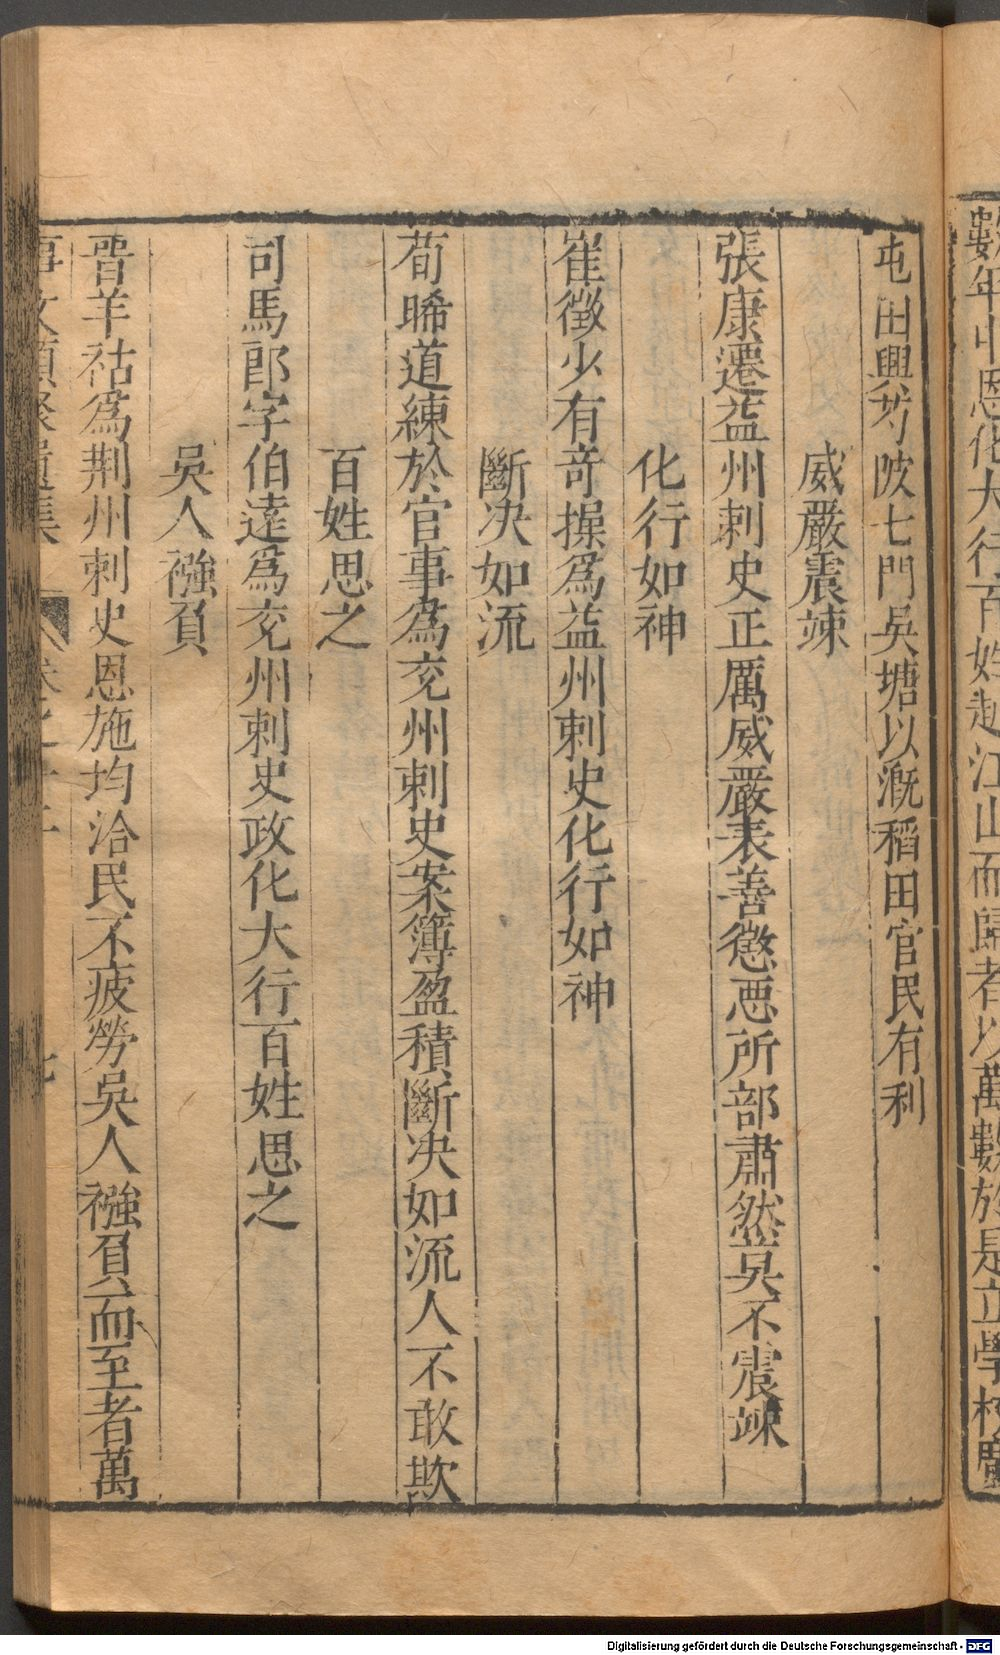 數年中恩化大行百姓越江山而歸者以萬數於是立學校廣
屯田興芍陂七門吳塘以溉稻田官民有利
威嚴震竦
張康遷益州刺史正厲威嚴表善懲惡所部肅然莫不震竦
化行如神
崔徵少有竒操爲益州刺史化行如神
斷决如流
荀晞道練於官事爲兖州刺史案簿盈積斷决如流人不敢欺
百姓思之
司馬郎字伯達爲兖州刺史政化大行百姓思之
吳人襁負
晋羊祜爲荆州刺史恩施均洽民不疲勞吳人襁負而至者萬
事文類聚遺集 卷之十一 七
Digitalisierung gefördert durch die Deutsche Forschungsgemeinschaft - DFG